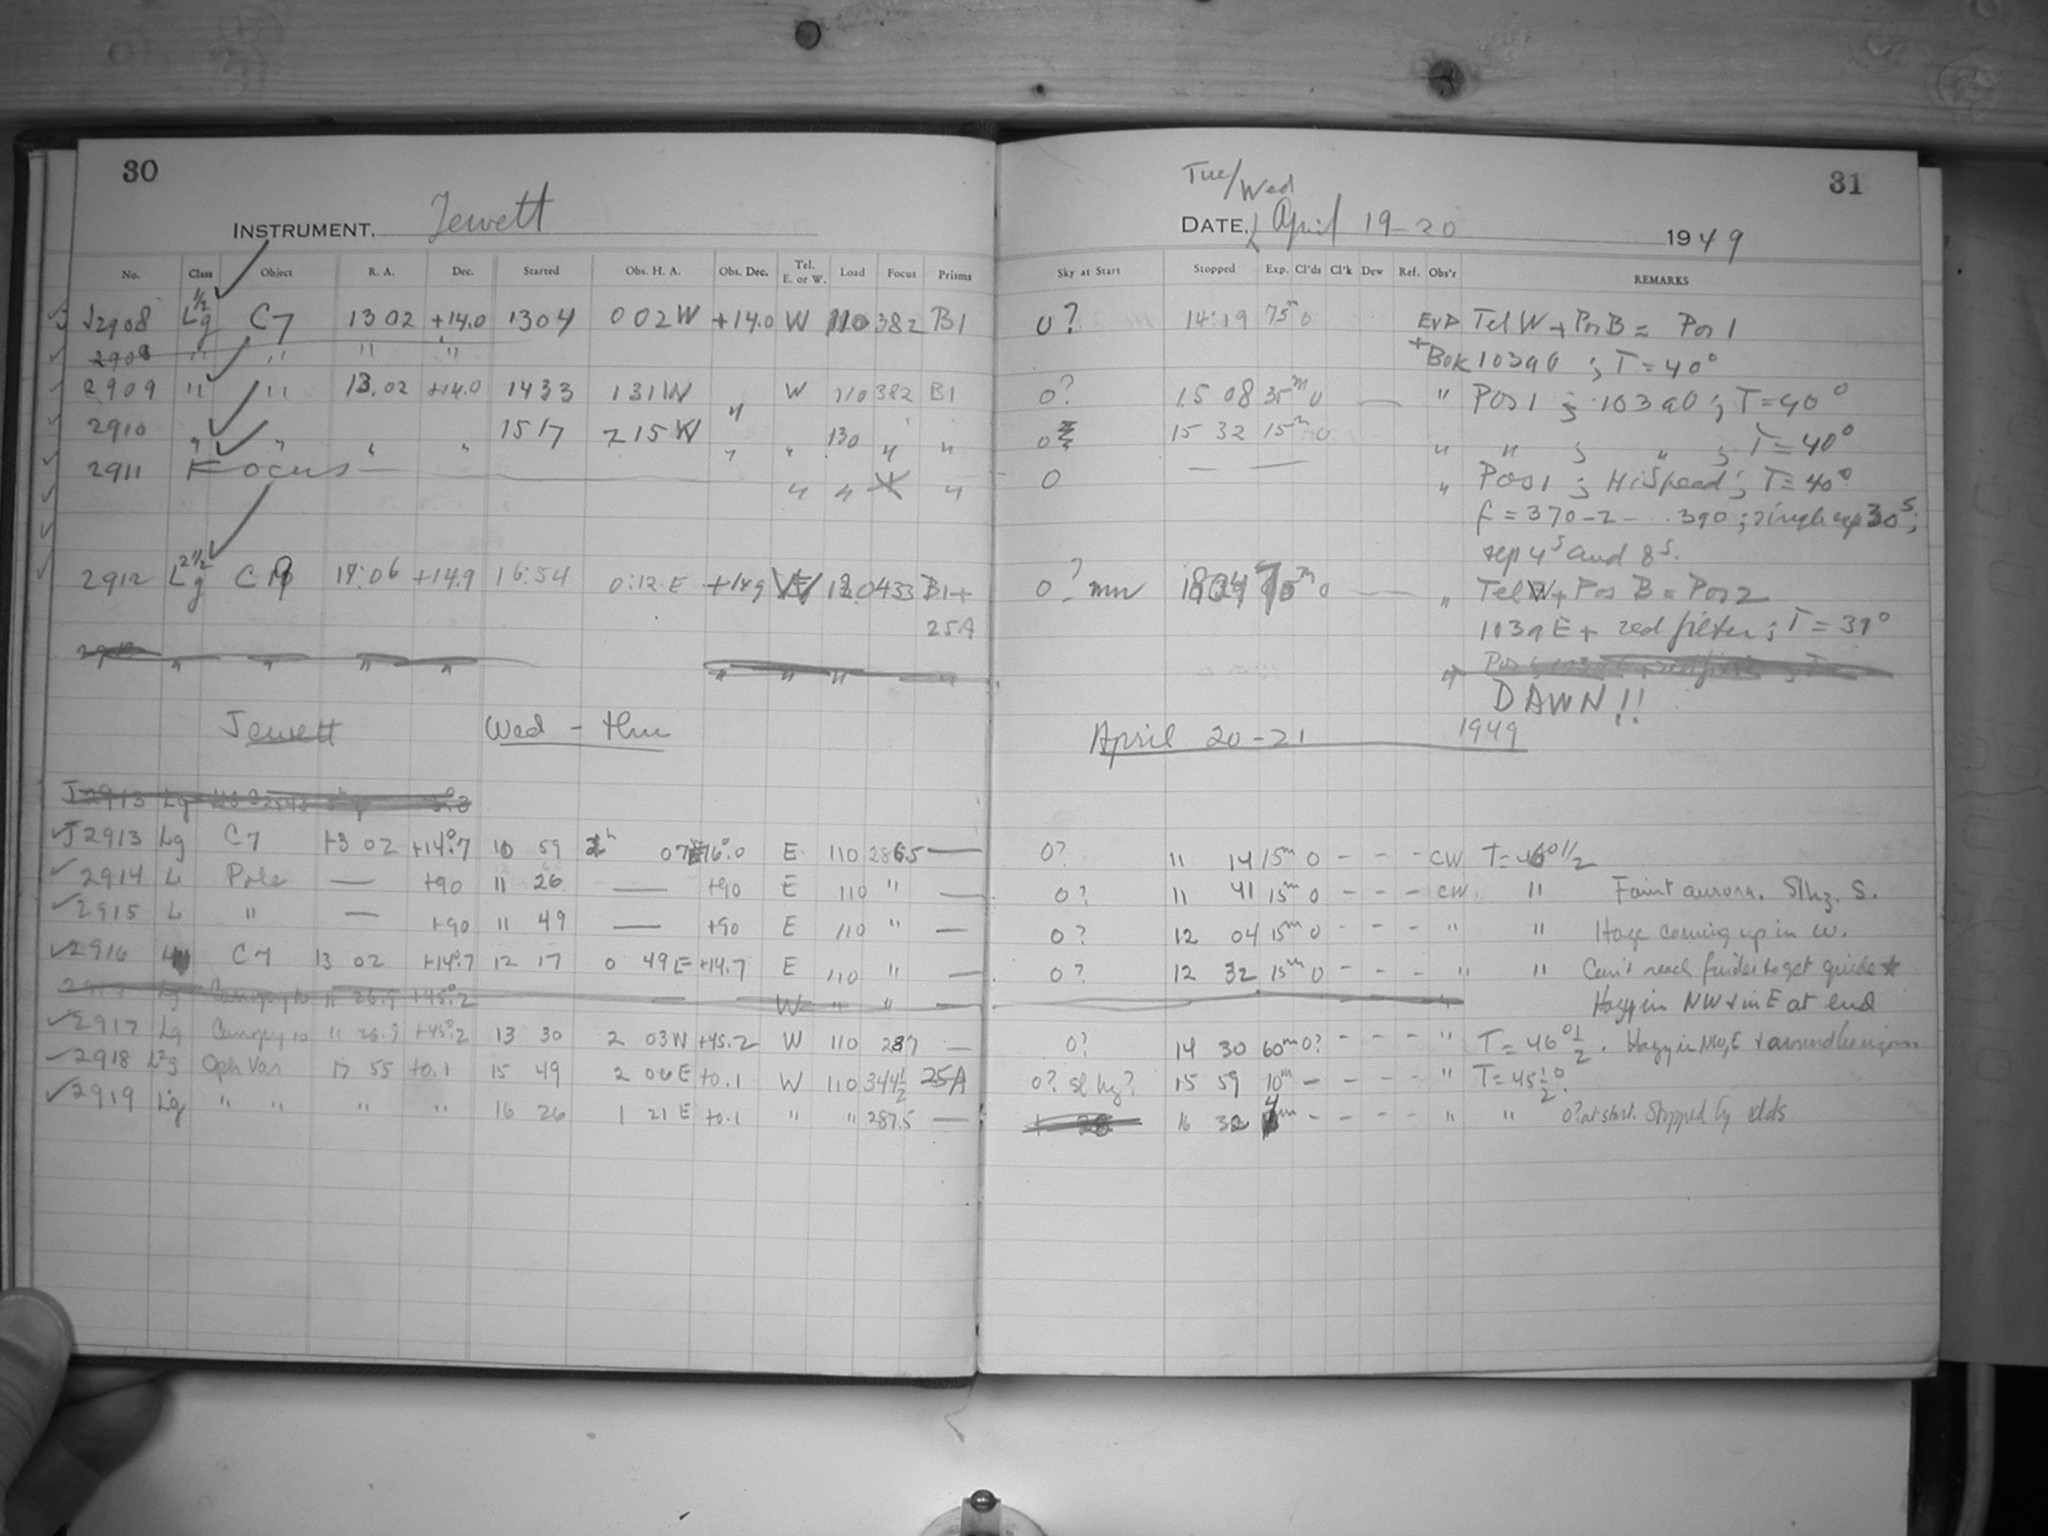 30
INSTRUMENT. Jewett
No. Class Object R. A. Dec. Started Obs. H. A. Obs. Dec. Tel. E. or W. Load Focus Prisms
J2908 L½g C7 13 02 +14.0 1304 0 02 W +14.0 W 110 382 B1
2909 " " 13.02 +14.0 1433 1 31 W " W 110 382 B1
2910 " " " " 1517 2 15 W " " 130 " " "
2911 Focus " " "
2912 L2½g C19 14:06 +14.9 16:54 0:12 E +14.9 W 120 433 B1+
25A
Jewett Wed - Thu
J2913 Lg C7 13 02 +14°.7 10 59 2h 07E +16°.0 E 110 286.5 —
2914 L Pole — +90 11 26 — +90 E 110 " —
2915 L " — +90 11 49 — +90 E 110 " —
2916 C7 13 02 +14°.7 12 17 0 49E +14.7 E 110 " —
2917 Lg 11 26.9 +45°.2 13 30 2 03W +45.2 W 110 287 —
2918 L2g Oph Var 17 55 +0.1 15 49 2 06 E +0.1 W 110 344½ 25A
2919 Lg " " " " 16 26 1 21 E +0.1 " " 287.5 —
31
Tue/Wed
DATE, April 19-20 1949
Sky at Start Stopped Exp. Cl'ds Cl'k Dew Ref. Obs'r REMARKS
0? 14:19 75m 0 EVP Tel W + Pos B = Pos 1
+Bok 103a0 ; T=40°
0? 15 08 35m 0 — " Pos 1 ; 103a0 ; T=40°
0 15 32 15m 0 " " ; " ; T=40°
0 — — " Pos 1 ; HiSpeed ; T=40°
f = 370-2-...390 ; single exp 30s ;
sep 4s and 8s.
0? mw 0 — — " Tel W + Pos B = Pos 2
103aE + red filter ; T = 39°
DAWN!!
April 20-21 1949
0? 11 14 15m 0 - - - CW T=46°1/2
0? 11 41 15m 0 - - - CW " Faint aurora. Sl hz. S.
0? 12 04 15m 0 - - - " " Haze coming up in W.
0? 12 32 15m 0 - - - " " Can't reach finder to get guide ★
Hazy in NW & in E at end
0? 14 30 60m 0? - - - " T=46°½. Hazy in NW, E & around horizon
0? sl hz? 15 59 10m - - - - " T=45½°.
16 32 m - - - - " " 0? at start. Stopped by clds